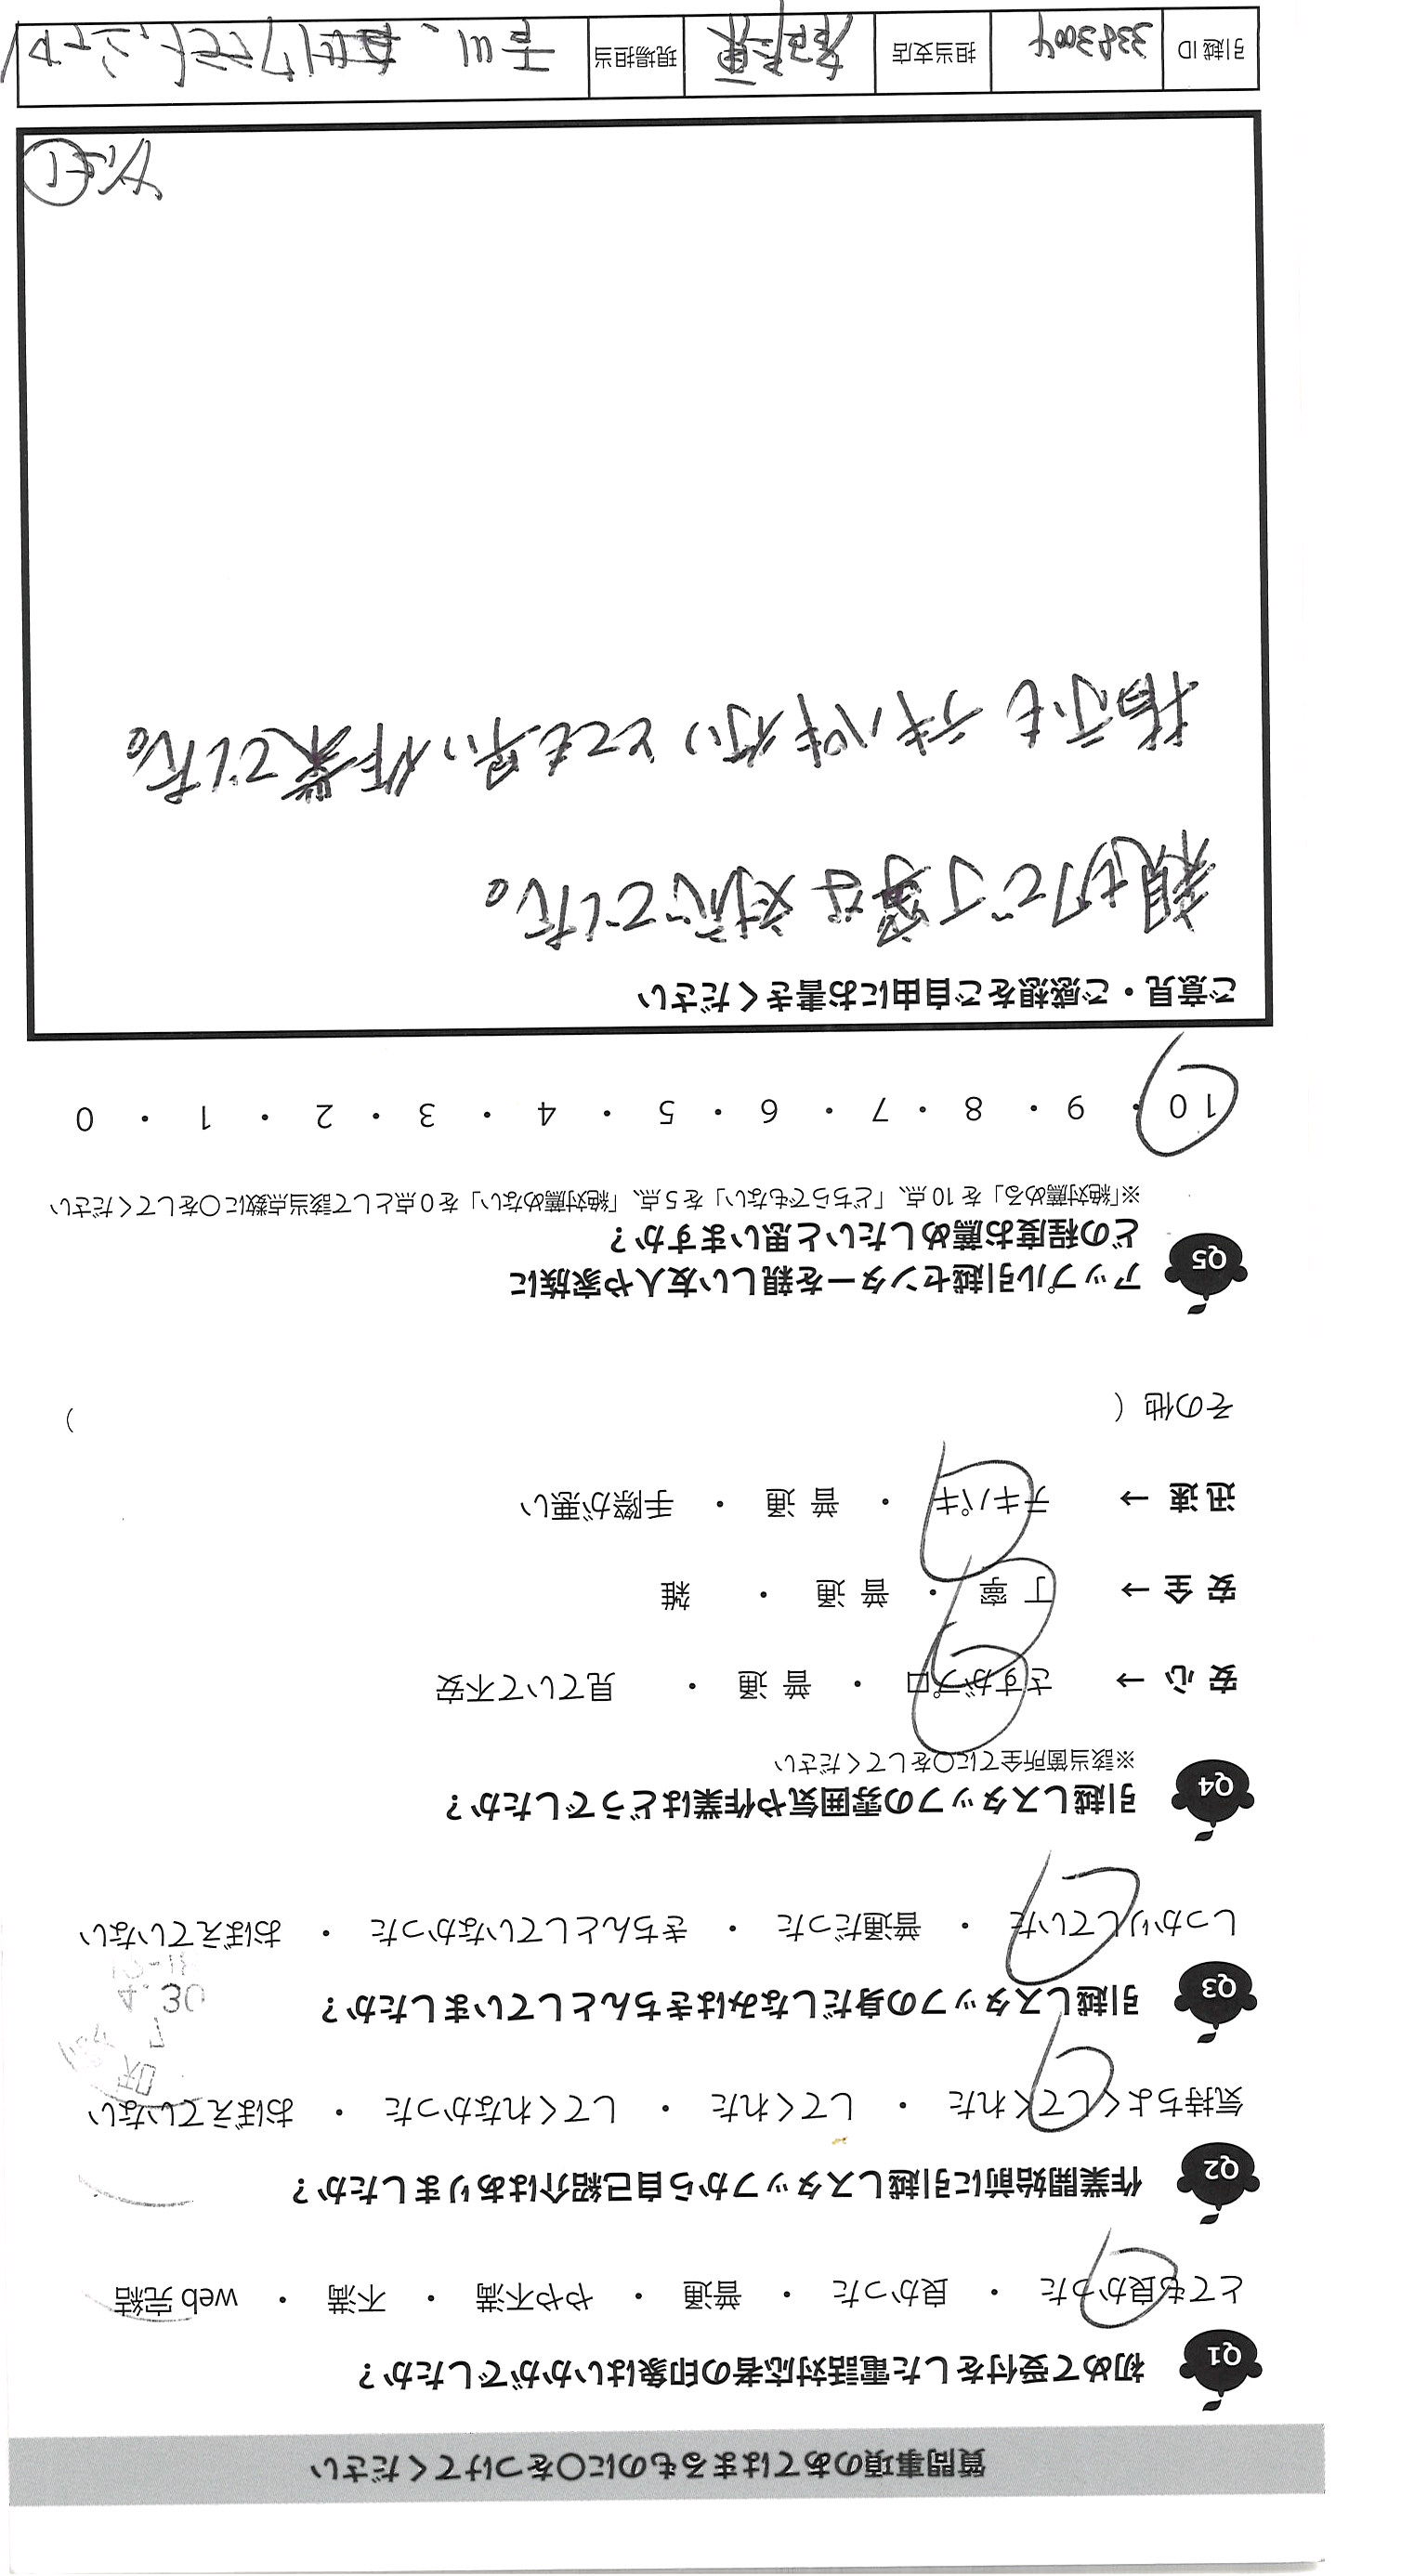 質問事項のあてはまるものに○をつけてください
Q1 初めて受付をした電話対応者の印象はいかがでしたか？
とても良かった ・ 良かった ・ 普通 ・ やや不満 ・ 不満 ・ web 完結
Q2 作業開始前に引越しスタッフから自己紹介はありましたか？
気持ちよくしてくれた ・ してくれた ・ してくれなかった ・ おぼえていない
Q3 引越しスタッフの身だしなみはきちんとしていましたか？
4.30
しっかりしていた ・ 普通だった ・ きちんとしていなかった ・ おぼえていない
Q4 引越しスタッフの雰囲気や作業はどうでしたか？
※該当箇所全てに○をしてください
安心 → さすがプロ ・ 普通 ・ 見ていて不安
安全 → 丁寧 ・ 普通 ・ 雑
迅速 → テキパキ ・ 普通 ・ 手際が悪い
その他（ ）
Q5 アップル引越センターを親しい友人や家族に
どの程度お薦めしたいと思いますか？
※「絶対薦める」を 10 点、「どちらでもない」を 5 点、「絶対薦めない」を 0 点として該当点数に○をしてください
10 ・ 9 ・ 8 ・ 7 ・ 6 ・ 5 ・ 4 ・ 3 ・ 2 ・ 1 ・ 0
ご意見・ご感想をご自由にお書きください
親切で丁寧な対応でした。
指示もテキパキ行いとても早い作業でした。
引越 ID 担当支店 現場担当